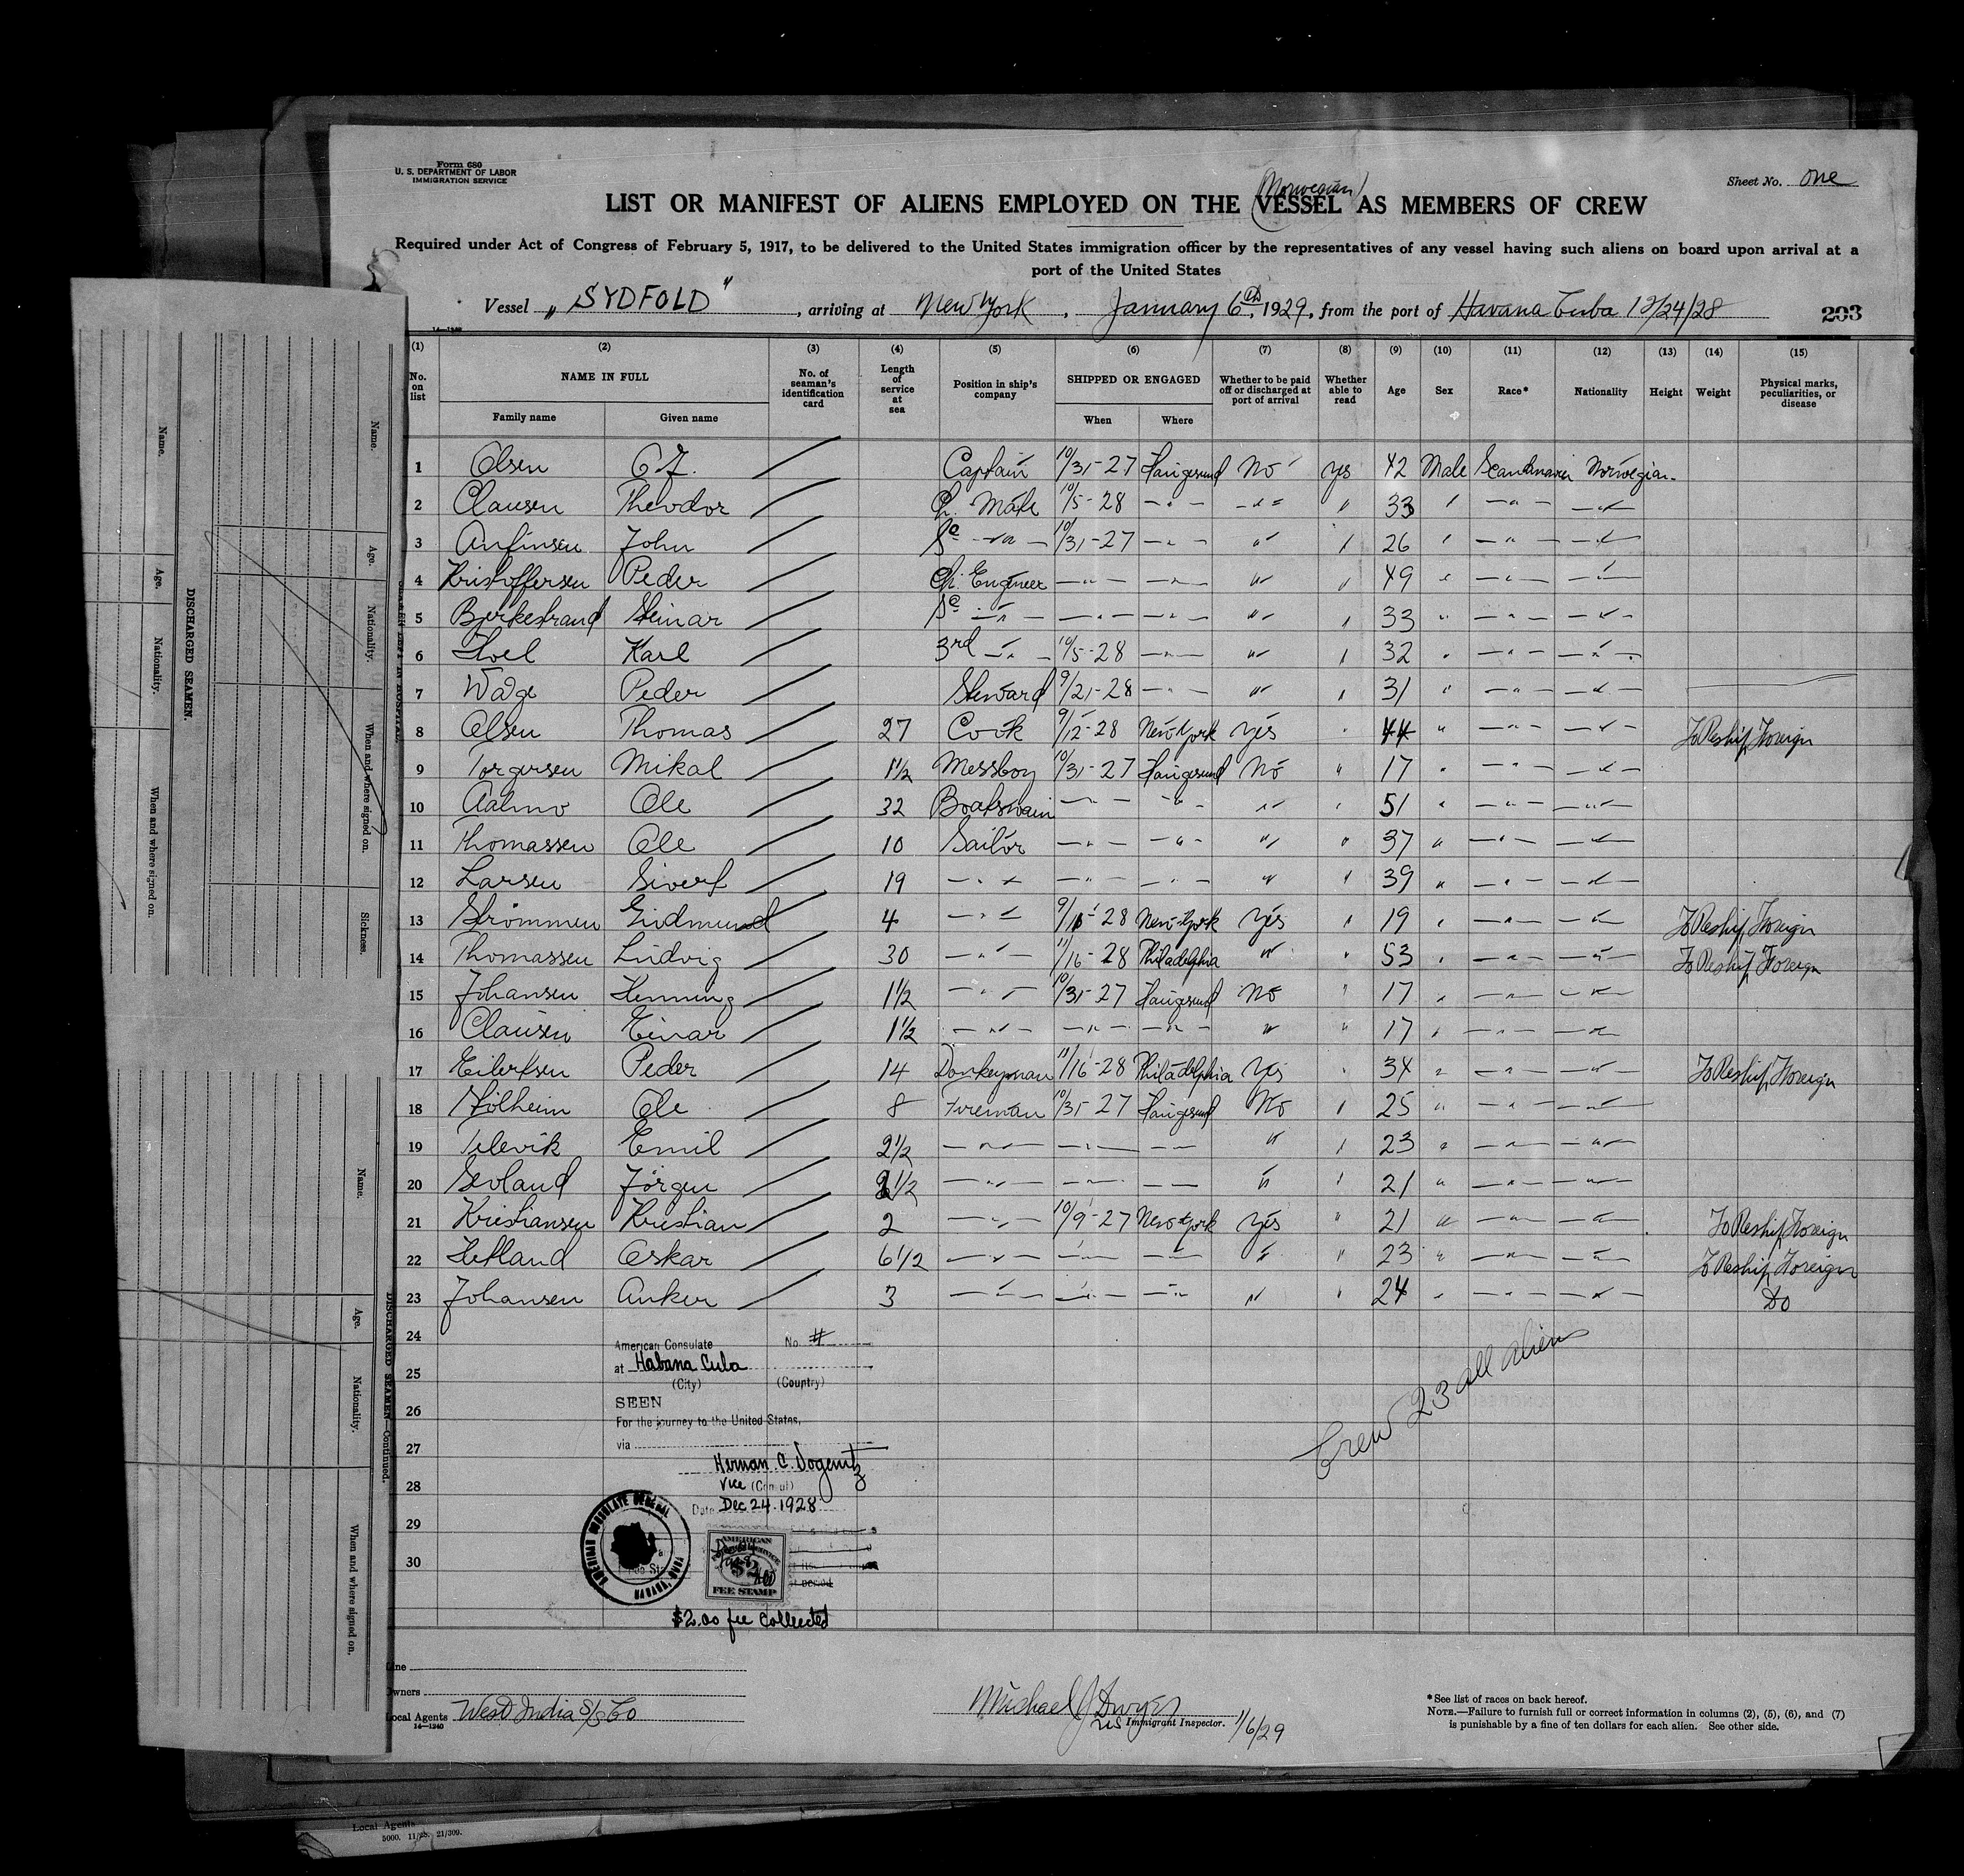 Form 680
U. S. DEPARTMENT OF LABOR
IMMIGRATION SERVICE
Sheet No. one
(Norwegian)
LIST OR MANIFEST OF ALIENS EMPLOYED ON THE VESSEL AS MEMBERS OF CREW
Required under Act of Congress of February 5, 1917, to be delivered to the United States immigration officer by the representatives of any vessel having such aliens on board upon arrival at a
port of the United States
Vessel "SYDFOLD", arriving at New York, January 6th, 1929, from the port of Havana Cuba 12/24/28
203
14-1240
(1) (2) (3) (4) (5) (6) (7) (8) (9) (10) (11) (12) (13) (14) (15)
No. on list
NAME IN FULL
Family name Given name
No. of seaman's identification card
Length of service at sea
Position in ship's company
SHIPPED OR ENGAGED
When Where
Whether to be paid off or discharged at port of arrival
Whether able to read
Age Sex Race* Nationality Height Weight
Physical marks, peculiarities, or disease
1 Olsen Captain 10/31-27 Haugesund No yes 42 Male Scandinavin Norwegian
2 Clausen Theodor Ch. Mate 10/5-28 -"- -"- " 33 " -"- -"-
3 Anfinsen John -"- 10/31-27 -"- " " 26 " -"- -"-
4 Kristoffersen Peder Ch. Engineer -"- -"- " " 49 " -"- -"-
5 Steinar -"- -"- -"- " " 33 " -"- -"-
6 Karl 3rd -"- 10/5-28 -"- " " 32 " -"- -"-
7 Peder Steward 9/21-28 -"- " " 31 " -"- -"-
8 Olsen Thomas 27 Cook 9/12-28 New York Yes " 44 " -"- -"- To Reship Foreign
9 Torgersen Mikal 1 1/2 Messboy 10/31-27 Haugesund No " 17 " -"- -"-
10 Aalmo Ole 32 Boatswain -"- -"- " " 51 " -"- -"-
11 Thomassen Ole 10 Sailor -"- -"- " " 37 " -"- -"-
12 Larsen Sivert 19 -"- -"- -"- " " 39 " -"- -"-
13 Strömmen Gudmund 4 -"- 28 New York Yes " 19 " -"- -"- To Reship Foreign
14 Thomassen Ludvig 30 -"- 11/16-28 Philadelphia " " 53 " -"- -"- To Reship Foreign
15 Johansen Henning 1 1/2 -"- 10/31-27 Haugesund No " 17 " -"- -"-
16 Clausen Einar 1 1/2 -"- -"- -"- " " 17 " -"- -"-
17 Eilertsen Peder 14 Donkeyman 11/16-28 Philadelphia Yes " 34 " -"- -"- To Reship Foreign
18 Ole 8 Fireman 10/31-27 Haugesund No " 25 " -"- -"-
19 Emil 2 1/2 -"- -"- -"- " " 23 " -"- -"-
20 Jörgen -"- -"- -"- " " 21 " -"- -"-
21 Kristiansen Kristian 2 -"- 10/9-27 New York Yes " 21 " -"- -"- To Reship Foreign
22 Hetland Oskar 6 1/2 -"- -"- -"- " " 23 " -"- -"- To Reship Foreign
23 Johansen Anker 3 -"- -"- -"- " " 24 " -"- -"- Do
24
25
26
27
28
29
30
American Consulate No. #
at Habana Cuba
(City) (Country)
SEEN
For the journey to the United States,
via
Vice (Consul)
Date Dec 24. 1928
AMERICAN CONSULATE GENERAL
HABANA, CUBA
AMERICAN
FEE STAMP
$2.00 fee collected
Crew 23 all aliens
Line
Owners
Local Agents West India S/S Co
14-1240
Michael J Dwyer
US Immigrant Inspector. 1/6/29
*See list of races on back hereof.
NOTE.—Failure to furnish full or correct information in columns (2), (5), (6), and (7)
is punishable by a fine of ten dollars for each alien. See other side.
DISCHARGED SEAMEN.
Name. Age. Nationality. When and where signed on.
Name. Age. Nationality. When and where signed on. Sickness.
DISCHARGED SEAMEN—Continued.
Name. Age. Nationality. When and where signed on.
Local Agents
5000. 11/28. 21/300.